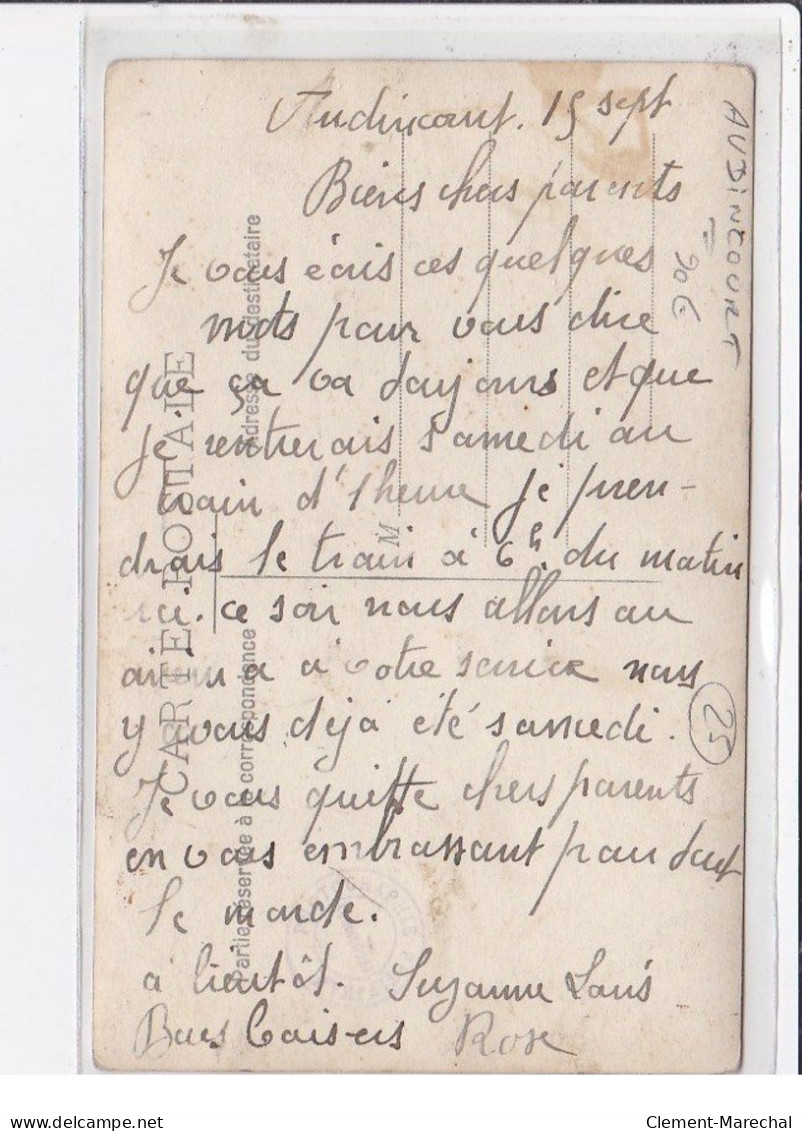 Audincourt. 15 sept
Biens chers parents
Je vous écris ces quelques
mots pour vous dire
que ça va toujours et que
je rentrerais samedi au
train d'1 heure je pren-
drais le train à 6h. du matin
ici. ce soir nous allons au
à votre service nous
y avons déjà été samedi.
Je vous quitte chers parents
en vous embrassant pour tout
le monde.
à bientôt. Suzanne
Bons baisers Rose
AUDINCOURT
90€
25
CARTE POSTALE
Partie réservée à la correspondance
Adresse du destinataire
M
Clement-Marechal